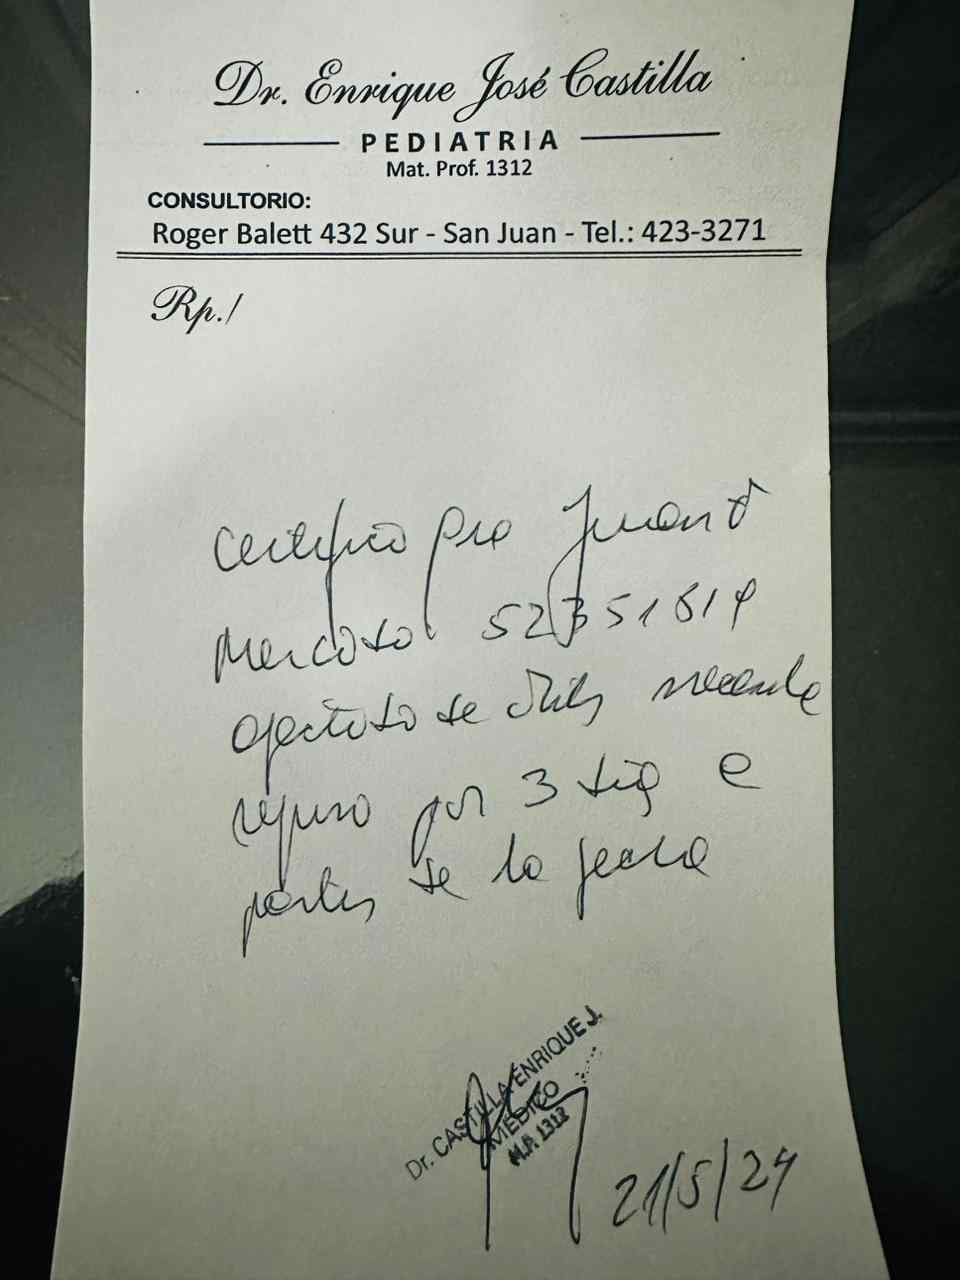 Dr. Enrique José Castilla
PEDIATRIA
Mat. Prof. 1312
CONSULTORIO:
Roger Balett 432 Sur - San Juan - Tel.: 423-3271
Rp./
Certifico que Juan
Mercado
afectado de necesita
reposo por 3 días a
partir de la fecha
Dr. CASTILLA ENRIQUE J.
MEDICO
M.P. 1312
21/5/24